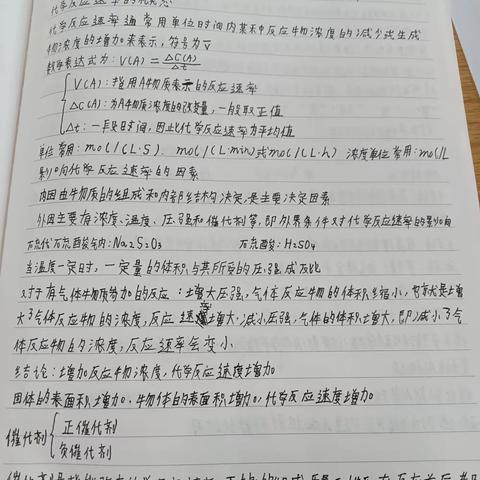 化学反应速率的概念
化学反应速率通常用单位时间内某种反应物浓度的减少或生成
物浓度的增加来表示，符号为V
数学表达式为：V(A)=△C(A)/△t
V(A)：指用A物质表示的反应速率
△C(A)：为A物质浓度的改变量，一般取正值
△t：一段日时间，因此化学反应速率为平均值
单位常用：mol/(L·S)、mol/(L·min)或mol/(L·h) 浓度单位常用：mol/L
影响化学反应速率的因素
内因由物质的组成和内部结构决定，是主要决定因素
外因主要有浓度、温度、压强和催化剂等，即外界条件对化学反应速率的影响
硫代硫酸钠：Na₂S₂O₃ 硫酸：H₂SO₄
当温度一定时，一定量的体积与其所受的压强成反比
对于有气体物质参加的反应：增大压强，气体反应物的体积缩小，也就是增
大了气体反应物的浓度，反应速率增大，减小压强，气体的体积增大，即减小了气
体反应物的浓度，反应速率会变小
结论：增加反应物浓度，化学反应速度增加
固体的表面积增加，物体的表面积增加，化学反应速度增加
催化剂
正催化剂
负催化剂